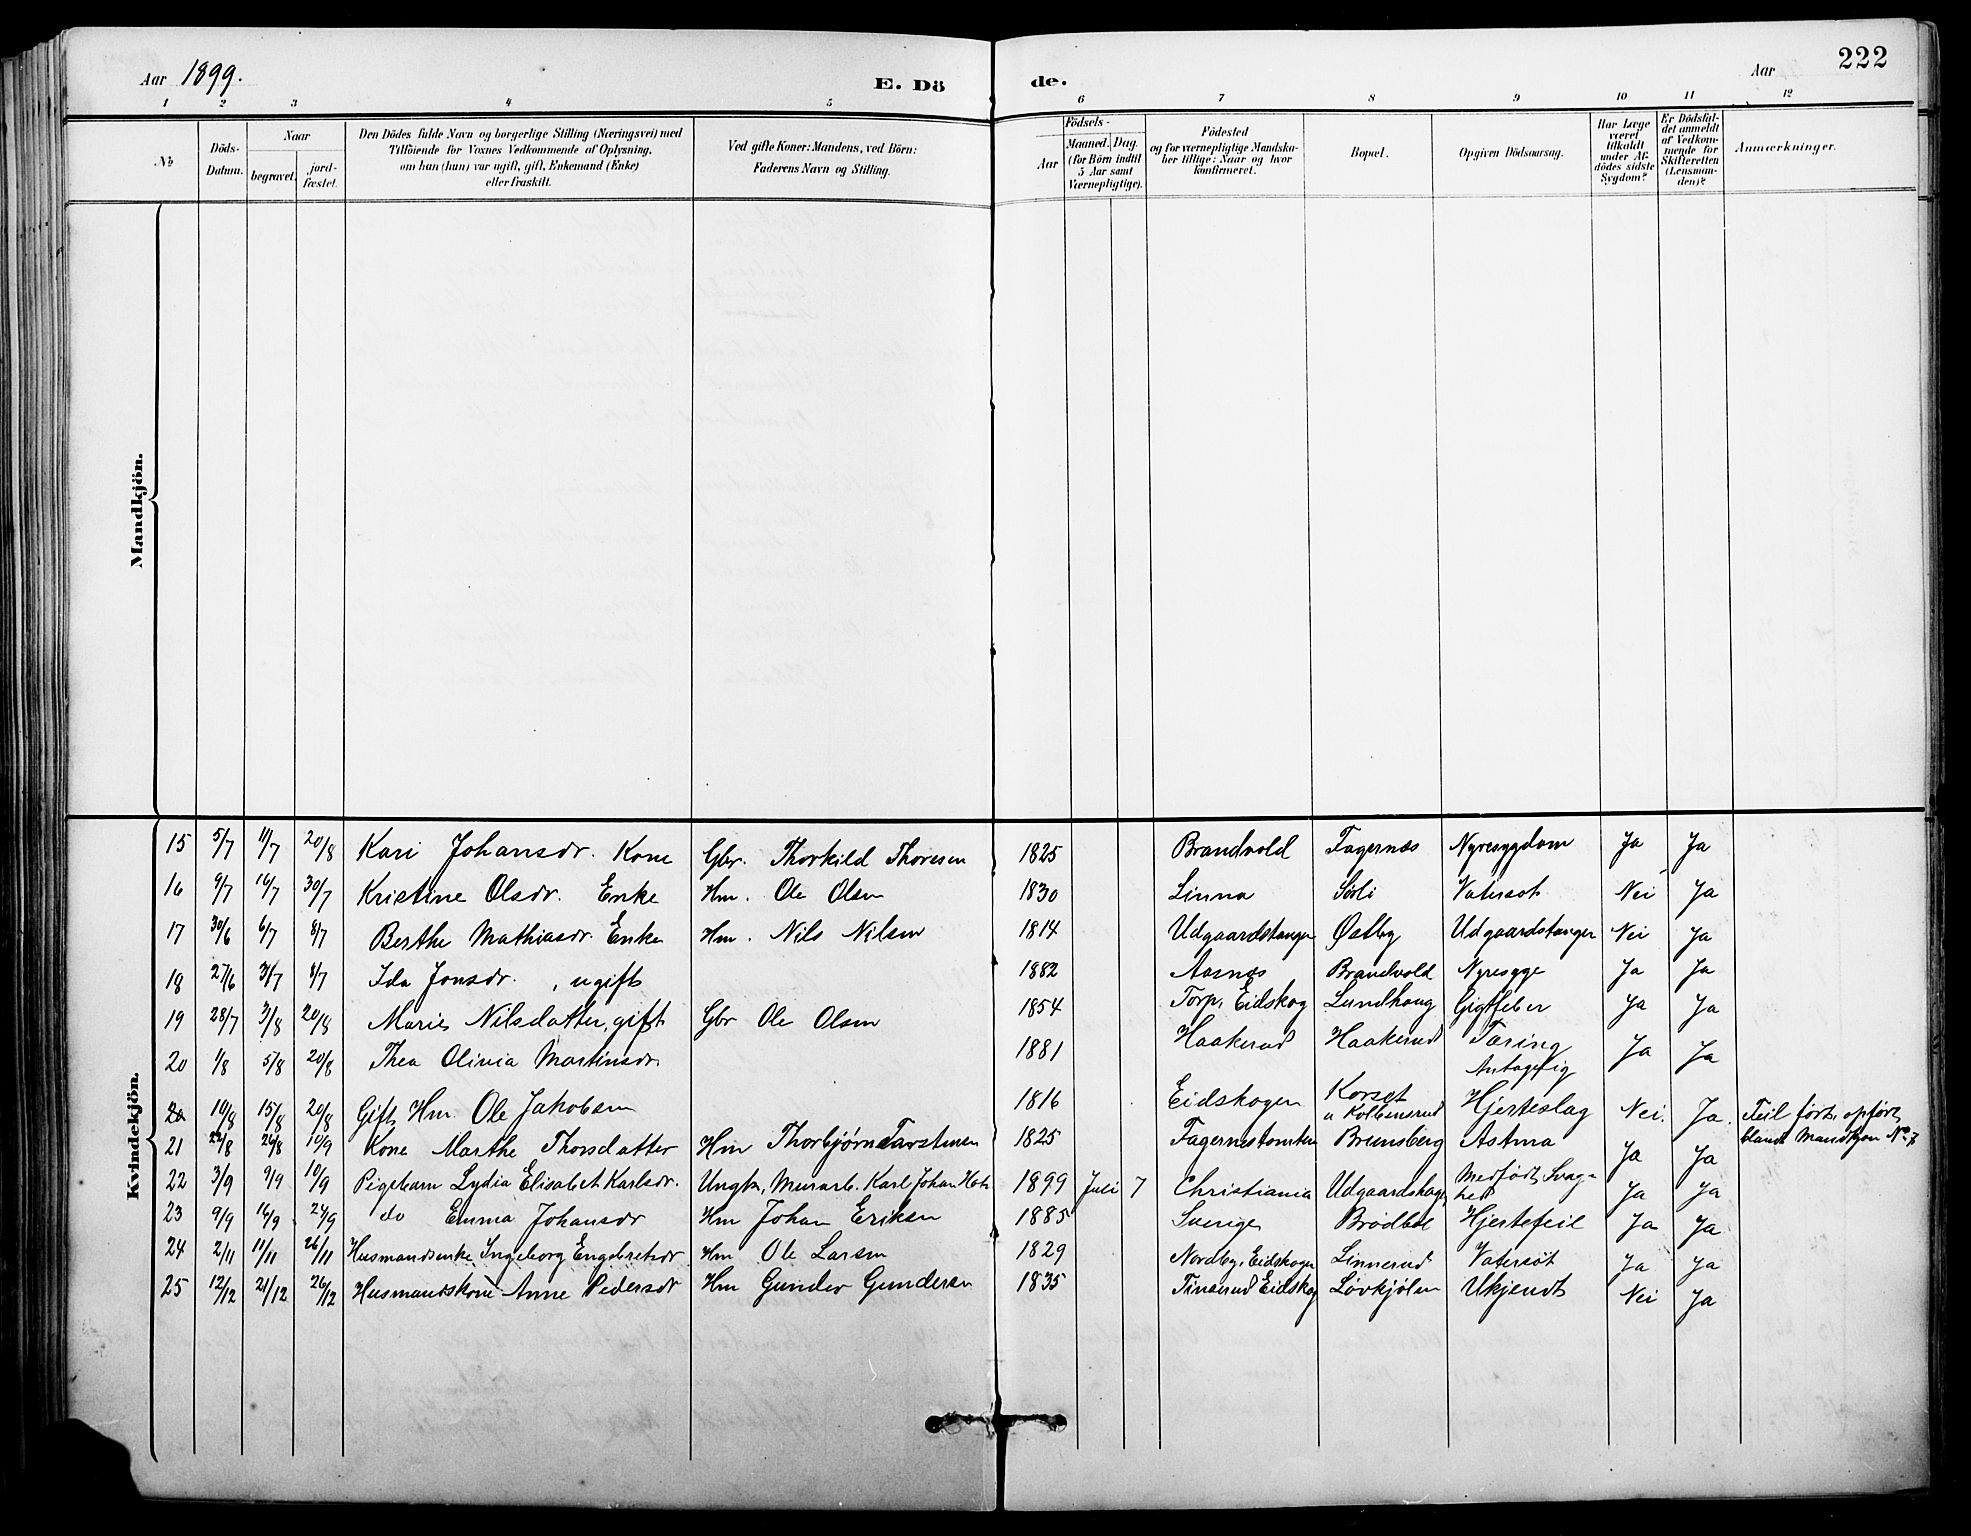 Aar 1899.
E. Dö
de.
Aar
222
1 2 3 4 5 6 7 8 9 10 11 12
No
Döds-
Datum.
Naar
begravet.
jord-
fæstet.
Den Dödes fulde Navn og borgerlige Stilling (Næringsvei) med
Tilföiende for Voxnes Vedkommende af Oplysning,
om han (hun) var ugift, gift, Enkemand (Enke)
eller fraskilt.
Ved gifte Koner: Mandens, ved Börn:
Faderens Navn og Stilling.
Födsels-
Aar
Maaned. Dag.
(for Börn indtil
5 Aar samt
Værnepligtige).
Födested
og for værnepligtige Mandska-
ber tillige: Naar og hvor
konfirmeret.
Bopæl.
Opgiven Dödsaarsag.
Har Læge
været
tilkaldt
under Af-
dödes sidste
Sygdom?
Er Dödsfal-
det anmeldt
af Vedkom-
mende for
Skifteretten
(Lensman-
den)?
Anmærkninger.
Mandkjön.
Kvindekjön.
15 5/7 11/7 20/8 Kari Johansdr. Kone Gbr. Thorkild Thoresen 1825 Brandvold Fagernæs Nyresygdom Ja Ja
16 9/7 16/7 30/7 Kristine Olsdr. Enke Hm. Ole Olsen 1830 Linna Sørli Vatersot Nei Ja
17 30/6 6/7 8/7 Berthe Mathiasdr. Enke Hm. Nils Nilsen 1814 Udgaardstangen Østby Udgaardstangen Nei Ja
18 27/6 3/7 8/7 Ida Jonsdr., ugift 1882 Aasnæs Brandvold Nyresyge Ja Ja
19 28/7 3/8 20/8 Marie Nilsdatter, gift Gbr Ole Olsen 1854 Torp, Eidskog Lundhaug Gigtfeber Ja Ja
20 1/8 5/8 20/8 Thea Olivia Martinsdr. 1881 Haakerud Haakerud Tæring Ja Ja
Antagelig
20 10/8 15/8 20/8 Gift, Hm. Ole Jakobsen 1816 Eidskogen Korset Hjerteslag Nei. Ja. Feil ført, opført
u Kolbensrud blandt Mandkjøn No 7
21 22/8 26/8 10/9 Kone Marthe Thorsdatter Hm Thorbjørn Torstensen 1825 Fagernestomten Bremsberg Astma Ja Ja
22 3/9 9/9 10/9 Pigebarn Lydia Elisabet Karlsdr. Ungk, Murarb. Karl Johan 1899 Juli 7 Christiania Udgaardshagen Medfødt Svag-
hed Ja Ja
23 9/9 16/9 24/9 do Emma Johansdr Hm Johan Eriksen 1885 Sverige Brødbøl Hjertefeil Ja Ja
24 2/11 11/11 26/11 Husmandsenke Ingeborg Engebretsdr Hm Ole Larsen 1829 Nordby, Eidskogen Linnerud Vatersot Ja Ja
25 12/12 21/12 26/12 Husmandskone Anne Pedersdr Hm Gunder Gundersen 1835 Tinserud Eidskog Løvkjølen Ukjendt Nei Ja